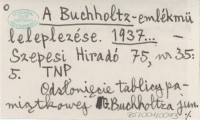 A Buchholtz-emlékmű
leleplezése. 1937... —
Szepesi Hiradó 75, nr 35:
5. TNP
Odsłonięcie tablicy pa-
miątkowej G. Buchholtza jun.